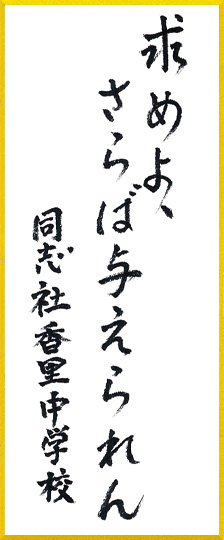 求めよ、
さらば与えられん
同志社香里中学校